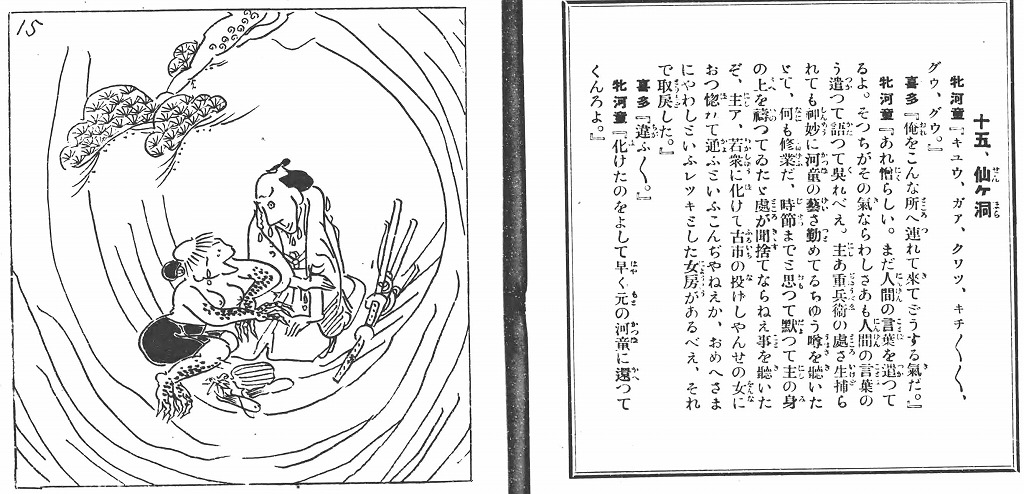 15
十五、仙ケ洞
牝河童『キユウ、ガア、クワツ、キチ〳〵〳〵、
グウ、グウ。』
喜多『俺をこんな所へ連れて來てどうする氣だ。』
牝河童『あれ憎らしい。まだ人間の言葉を遣つて
るよ。そつちがその氣ならわしさあも人間の言葉の
う遣つて語つて呉れべえ。主あ重兵衛の處さ生捕ら
れても神妙に河童の藝さ勤めてるちゆう噂を聽いた
とて、何も修業だ、時節までと思つて默つて主の身
の上を禱つてゐたと處が聞捨てならねえ事を聽いた
ぞ、主ア、若衆に化けて古市の投げしやんせの女に
おつ惚れて通ふといふこんぢやねえか、おめへさま
にやわしといふレツキとした女房があるべえ、それ
で取戻した。』
喜多『違ふ〳〵。』
牝河童『化けたのをよして早く元の河童に還つて
くんろよ。』